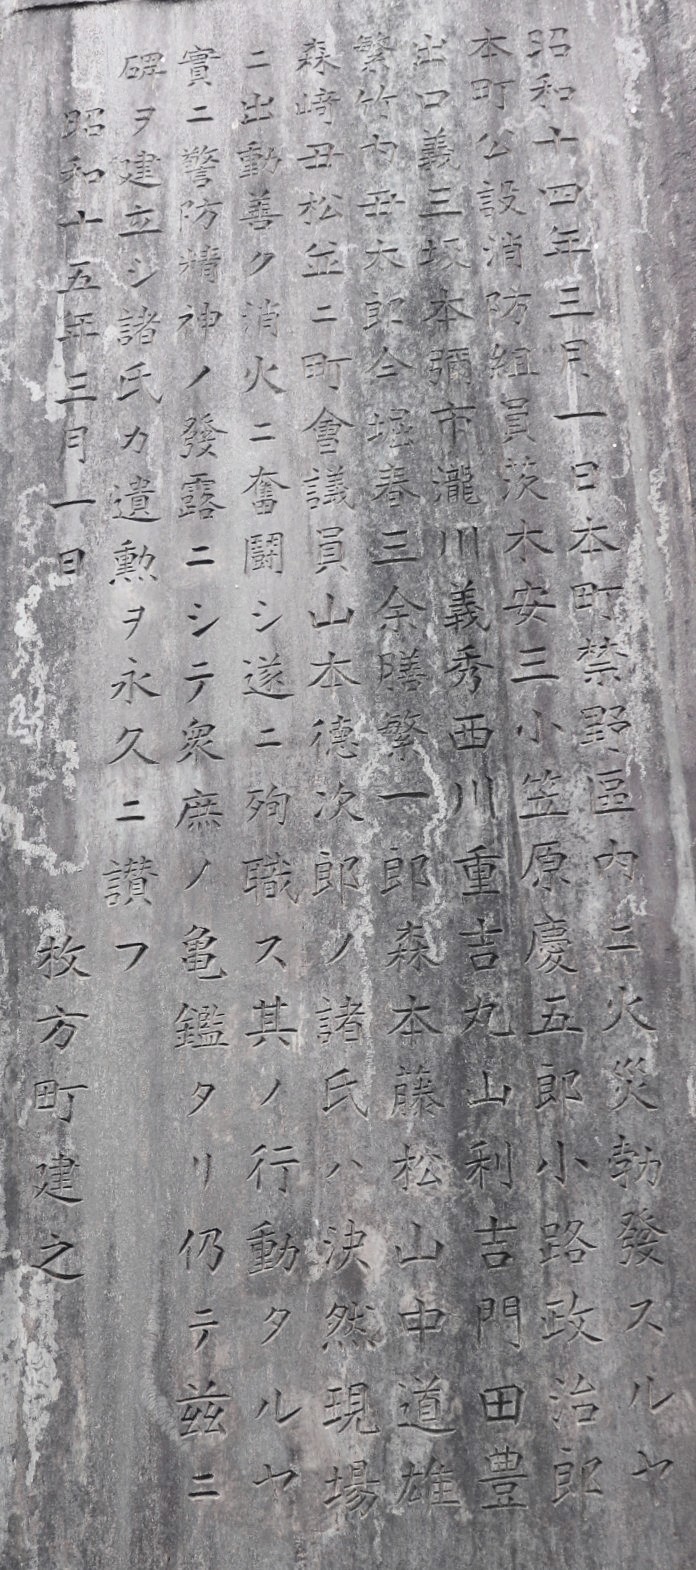 昭和十四年三月一日本町禁野區內ニ火災勃發スルヤ
本町公設消防組員茨木安三小笠原慶五郎小路政治郎
出口義三坂本彌市瀧川義秀西川重吉丸山利吉門田豊
繁竹內丑太郎仝堀春三余膳繁一郎森本藤松山中道雄
森﨑丑松並ニ町會議員山本德次郎ノ諸氏ハ決然現場
ニ出動善ク消火ニ奮鬪シ遂ニ殉職ス其ノ行動タルヤ
實ニ警防精神ノ發露ニシテ衆庶ノ亀鑑タリ仍テ茲ニ
碑ヲ建立シ諸氏カ遺勲ヲ永久ニ讃フ
昭和十五年三月一日
枚方町建之